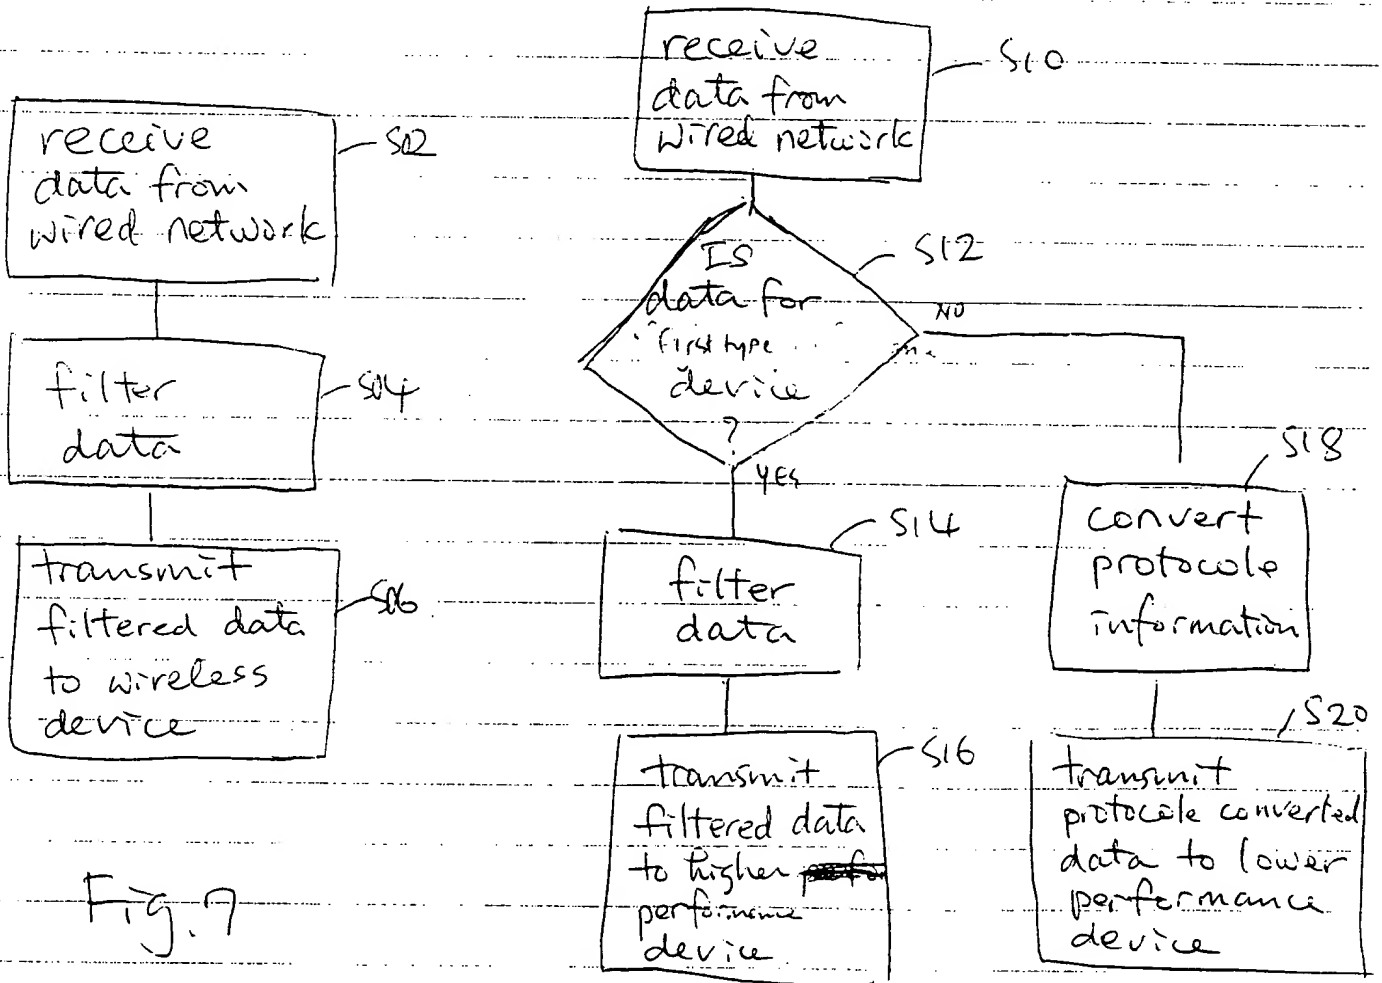 receive
data from
wired network
S02
filter
data
S04
transmit
filtered data
to wireless
device
S06
Fig. 7
receive
data from
wired network
S10
IS
data for
first type
device
?
S12
NO
YES
filter
data
S14
transmit
filtered data
to higher
performance
device
S16
convert
protocole
information
S18
transmit
protocole converted
data to lower
performance
device
S20